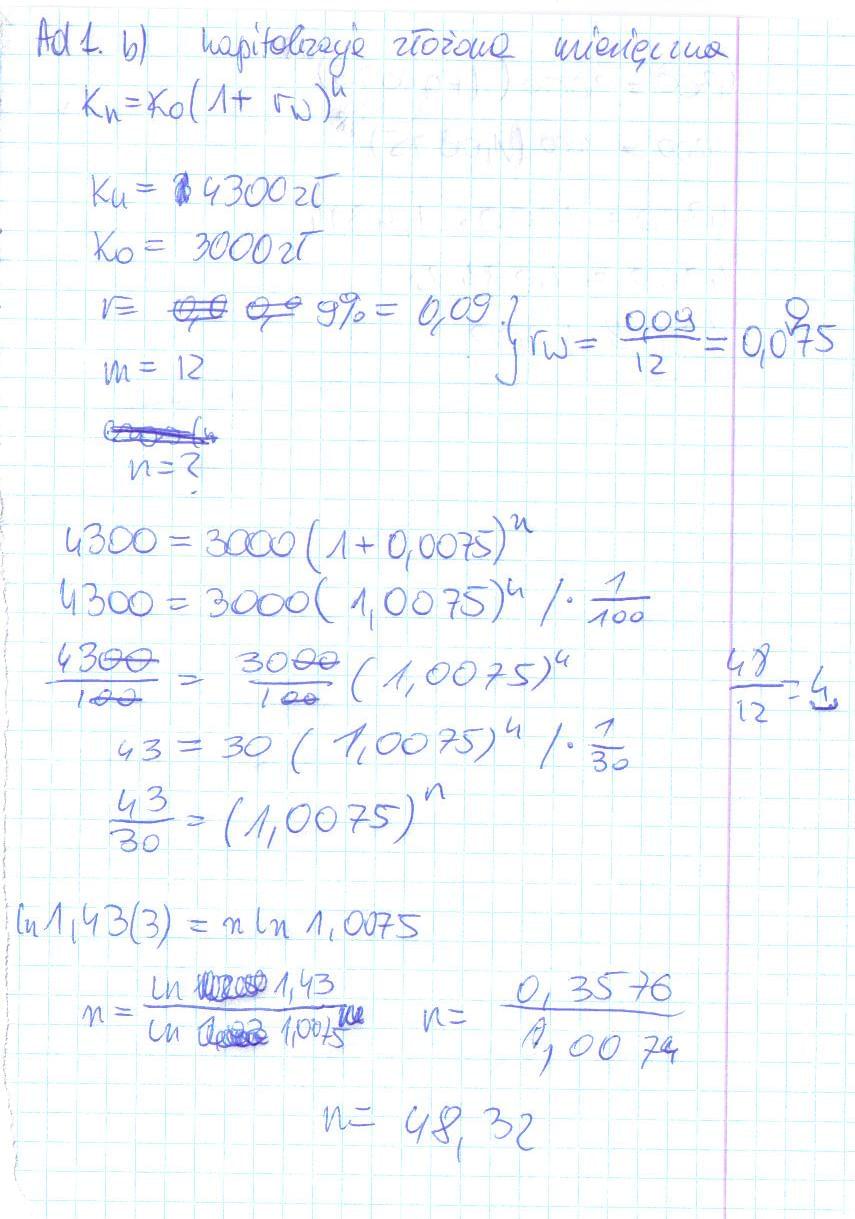 Ad 1. b) kapitalizacja złożona miesięczna
Kn = K0(1 + rw)^n
Kn = 4300 zł
K0 = 3000 zł
r = 0,0 0, 9% = 0,09 } rw = 0,09/12 = 0,0075
m = 12
n = ?
4300 = 3000(1 + 0,0075)^n
4300 = 3000(1,0075)^n /· 1/100
4300/100 = 3000/100 (1,0075)^n
48/12 = 4
43 = 30 (1,0075)^n /· 1/30
43/30 = (1,0075)^n
ln 1,43(3) = n ln 1,0075
n = ln 1,43 / ln 1,0075 n = 0,3576 / 1,0074
n = 48,32